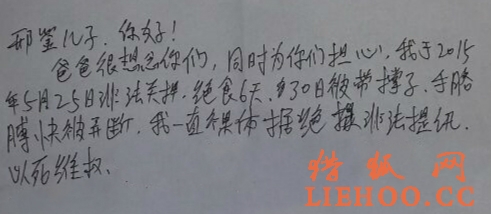 邢鉴儿子，你好！
爸爸很想念你们，同时为你们担心，我于2015
年5月25日非法关押，绝食6天，30日被带撑子，手胳
膊快被弄断，我一直裸体拒绝非法提讯，
以死维权。
特纸网
LIEHOO.CC